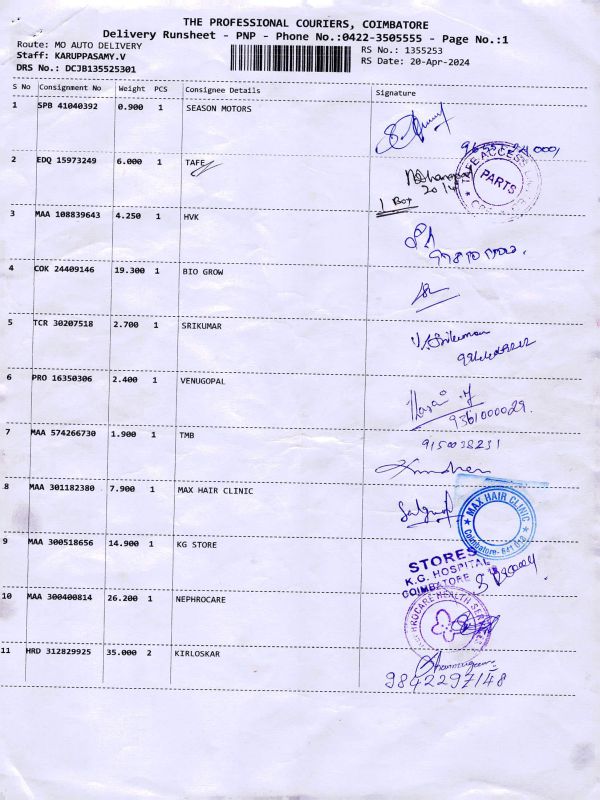 THE PROFESSIONAL COURIERS, COIMBATORE
Delivery Runsheet - PNP - Phone No.:0422-3505555 - Page No.:1
Route: MO AUTO DELIVERY
RS No.: 1355253
Staff: KARUPPASAMY.V
RS Date: 20-Apr-2024
DRS No.: DCJB135525301
S No Consignment No Weight PCS Consignee Details Signature
1 SPB 41040392 0.900 1 SEASON MOTORS
2 EDQ 15973249 6.000 1 TAFE
PARTS
1 Box
3 MAA 108839643 4.250 1 HVK
4 COK 24409146 19.300 1 BIO GROW
5 TCR 30207518 2.700 1 SRIKUMAR
6 PRO 16350306 2.400 1 VENUGOPAL
9361000029.
7 MAA 574266730 1.900 1 TMB
9150038231
8 MAA 301182380 7.900 1 MAX HAIR CLINIC
MAX HAIR CLINIC
Coimbatore- 641 012
9 MAA 300518656 14.900 1 KG STORE
STORES
K.G. HOSPITAL
COIMBATORE
10 MAA 300400814 26.200 1 NEPHROCARE
NEPHROCARE HEALTH SERVICES
11 HRD 312829925 35.000 2 KIRLOSKAR
9842297148